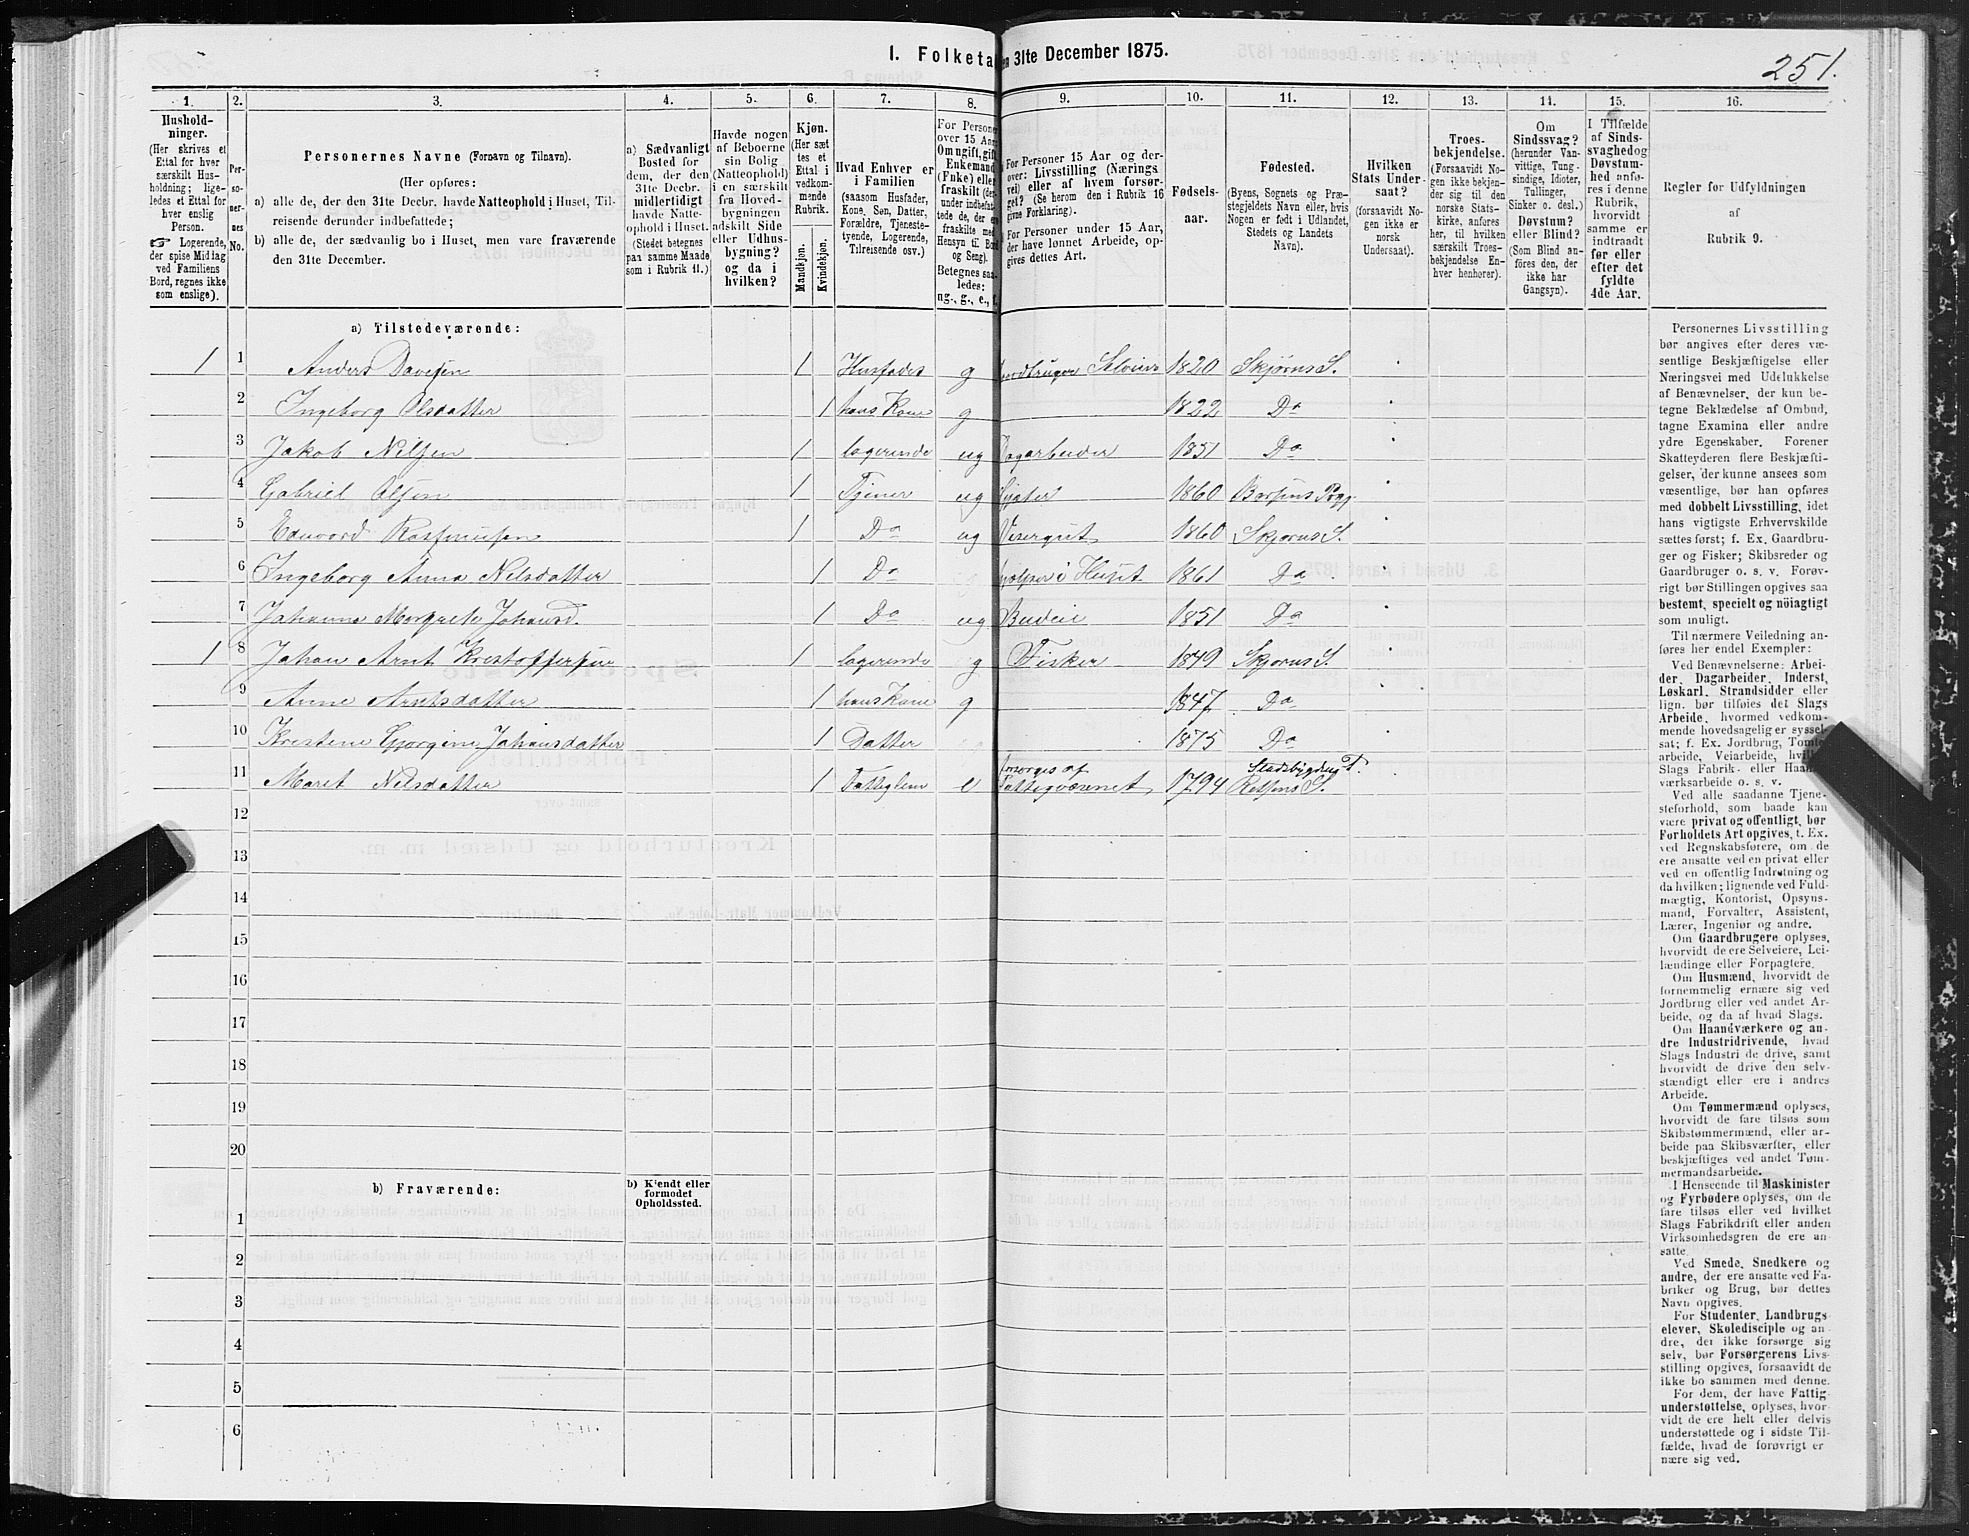 251.
I. Folketa
en 31te December 1875.
1. 2. 3. 4. 5. 6. 7. 8. 9. 10. 11. 12. 13. 14. 15. 16.
Hushold-
ninger.
(Her skrives et
Ettal for hver
særskilt Hus-
holdning; lige-
ledes et Ettal for
hver enslig
Person.
☞ Logerende,
der spise Middag
ved Familiens
Bord, regnes ikke
som enslige).
Per-
so-
ner-
nes
No.
Personernes Navne (Fornavn og Tilnavn).
(Her opføres:
a) alle de, der den 31te Decbr. havde Natteophold i Huset, Til-
reisende derunder indbefattede;
b) alle de, der sædvanlig bo i Huset, men vare fraværende
den 31te December.
a) Sædvanligt
Bosted for
dem, der den
31te Decbr.
midlertidigt
havde Natte-
ophold i Huset.
(Stedet betegnes
paa samme Maade
som i Rubrik 11.)
Havde nogen
af Beboerne
sin Bolig
(Natteophold)
i en særskilt
fra Hoved-
bygningen
adskilt Side
eller Udhus-
bygning?
og da i
hvilken?
Kjøn.
(Her sæt
tes et
Ettal i
vedkom-
mende
Rubrik.
Mandkjøn.
Kvindekjøn.
Hvad Enhver er
i Familien
(saasom Husfader,
Kone, Søn, Datter,
Forældre, Tjeneste-
tyende, Logerende,
Tilreisende osv.)
For Personer
over 15 Aar
Om ugift, gift
Enkemand
(Enke) eller
fraskilt
Betegnes saa-
ledes:
ug., g., e., f.
For Personer 15 Aar og der-
over: Livsstilling (Nærings
vei) eller af hvem forsør-
get? (Se herom den i Rubrik 16
givne Forklaring).
For Personer under 15 Aar,
der have lønnet Arbeide, op-
gives dettes Art.
Fødsels-
aar.
Fødested.
(Byens, Sognets og Præ-
stegjeldets Navn eller, hvis
Nogen er født i Udlandet,
Stedets og Landets
Navn).
Hvilken
Stats Under-
saat?
(forsaavidt No-
gen ikke er
norsk
Undersaat).
Troes-
bekjendelse.
(Forsaavidt No-
gen ikke bekjen-
der sig til den
norske Stats-
kirke, anføres
her, til hvilken
særskilt Troes-
bekjendelse En-
hver henhører).
Om
Sindssvag?
(herunder Van-
vittige, Tung-
sindige, Idioter,
Tullinger,
Sinker o. desl.)
Døvstum?
eller Blind?
(Som Blind an-
føres den, der
ikke har
Gangsyn).
I Tilfælde
af Sinds-
svaghed og
Døvstum-
hed anfø-
res i denne
Rubrik,
hvorvidt
samme er
indtraadt
før eller
efter det
fyldte
4de Aar.
Regler for Udfyldningen
af
Rubrik 9.
a) Tilstedeværende:
1 1 Anders Davesen 1 Husfader g Jordbruger Selveier 1820 Skjørns S.
2 Ingeborg Olsdatter 1 hans Kone g 1822 Do
3 Jakob Nilsen 1 logerende ug Dagarbeider 1851 Do
4 Gabriel Olsen 1 Tjener ug Gjeter 1860
5 Edvard Rasmusen 1 Do ug Visergut 1860 Skjørns S.
6 Ingeborg Anna Nelsdatter 1 Do hjelper i Huset 1861 Do
7 Johanna Morgrete Johansd. 1 Do ug Budeie 1851 Do
1 8 Johan Arnt Krestoffersen 1 logerende g Fisker 1849 Skjørns S.
9 Anne Arntsdatter 1 hans Kone g 1847 Do
10 Krestene Gjorgine Johansdatter 1 Datter 1875 Do
11 Maret Nelsdatter 1 Fattiglem e forsørges af Fattigvæsenet 1794 Stadsbygdens P. S.
12
13
14
15
16
17
18
19
20
b) Fraværende:
b) Kjendt eller
formodet
Opholdssted.
1
2
3
4
5
6
Personernes Livsstilling
bør angives efter deres væ-
sentlige Beskjæftigelse eller
Næringsvei med Udelukkelse
af Benævnelser, der kun be-
tegne Beklædelse af Ombud,
tagne Examina eller andre
ydre Egenskaber. Forener
Skatteyderen flere Beskjæfti-
gelser, der kunne ansees som
væsentlige, bør han opføres
med dobbelt Livsstilling, idet
hans vigtigste Erhvervskilde
sættes først; f. Ex. Gaardbru-
ger og Fisker; Skibsreder og
Gaardbruger o. s. v. Forøv-
rigt bør Stillingen opgives saa
bestemt, specielt og nöiagtigt
som muligt.
Til nærmere Veiledning an-
føres her endel Exempler:
Ved Benævnelserne: Arbei-
der, Dagarbeider, Inderst,
Løskarl, Strandsidder eller
lign. bør tilføies det Slags
Arbeide, hvormed vedkom-
mende hovedsagelig er syssel-
sat; f. Ex. Jordbrug, Tomte-
arbeide, Veiarbeide, hvilket
Slags Fabrik- eller Haand-
værksarbeide o. s. v.
Ved alle saadanne Tjene-
steforhold, som baade kan
være privat og offentligt, bør
Forholdets Art opgives, t. Ex.
ved Regnskabsførere, om de
ere ansatte ved en privat eller
ved en offentlig Indretning og
da hvilken; lignende ved Fuld-
mægtig, Kontorist, Opsyns-
mand, Forvalter, Assistent,
Lærer, Ingeniør og andre.
Om Gaardbrugere oplyses,
hvorvidt de ere Selveiere, Lei-
lændinge eller Forpagtere.
Om Husmænd, hvorvidt de
fornemmelig ernære sig ved
Jordbrug eller ved andet Ar-
beide, og da af hvad Slags.
Om Haandværkere og an-
dre Industridrivende, hvad
Slags Industri de drive, samt
hvorvidt de drive den selv-
stændigt eller ere i andres
Arbeide.
Om Tømmermænd oplyses,
hvorvidt de fare tilsøs som
Skibstømmermænd, eller ar-
beide paa Skibsværfter, eller
beskjæftiges ved andet Tøm-
mermandsarbeide.
I Henseende til Maskinister
og Fyrbødere oplyses, om de
fare tilsøs eller ved hvilket
Slags Fabrikdrift eller anden
Virksomhedsgren de ere an-
satte.
Ved Smede, Snedkere og
andre, der ere ansatte ved Fa-
briker og Brug, bør dettes
Navn opgives.
For Studenter, Landbrugs-
elever, Skoledisciple og an-
dre, der ikke forsørge sig
selv, bør Forsørgerens Livs-
stilling opgives, forsaavidt de
ikke bo sammen med denne.
For dem, der have Fattig-
understøttelse, oplyses, hvor-
vidt de ere helt eller delvis
understøttede og i sidste Til-
fælde, hvad de forøvrigt er
nære sig ved.